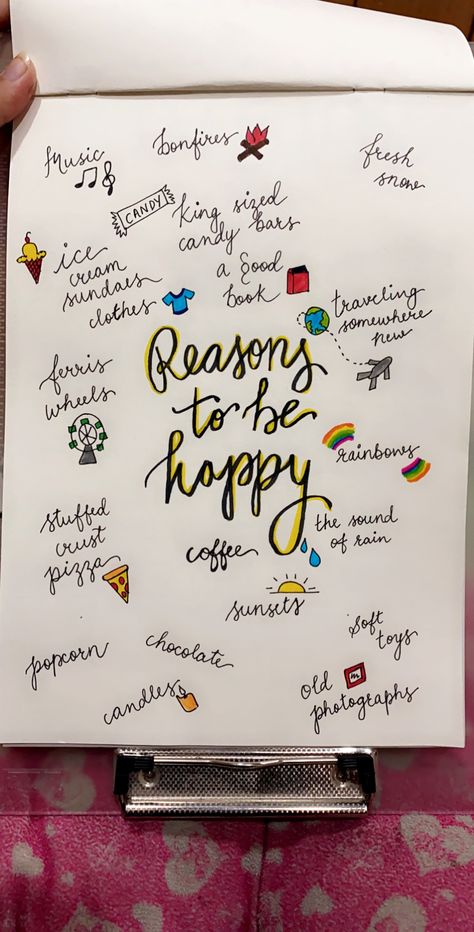 Music
bonfires
fresh
snow
CANDY
king sized
candy bars
ice
cream
sundaes
clothes
a good
book
traveling
somewhere
new
Reasons
to be
happy
ferris
wheels
rainbows
stuffed
crust
pizza
coffee
the sound
of rain
sunsets
soft
toys
popcorn
chocolate
candles
old
photographs